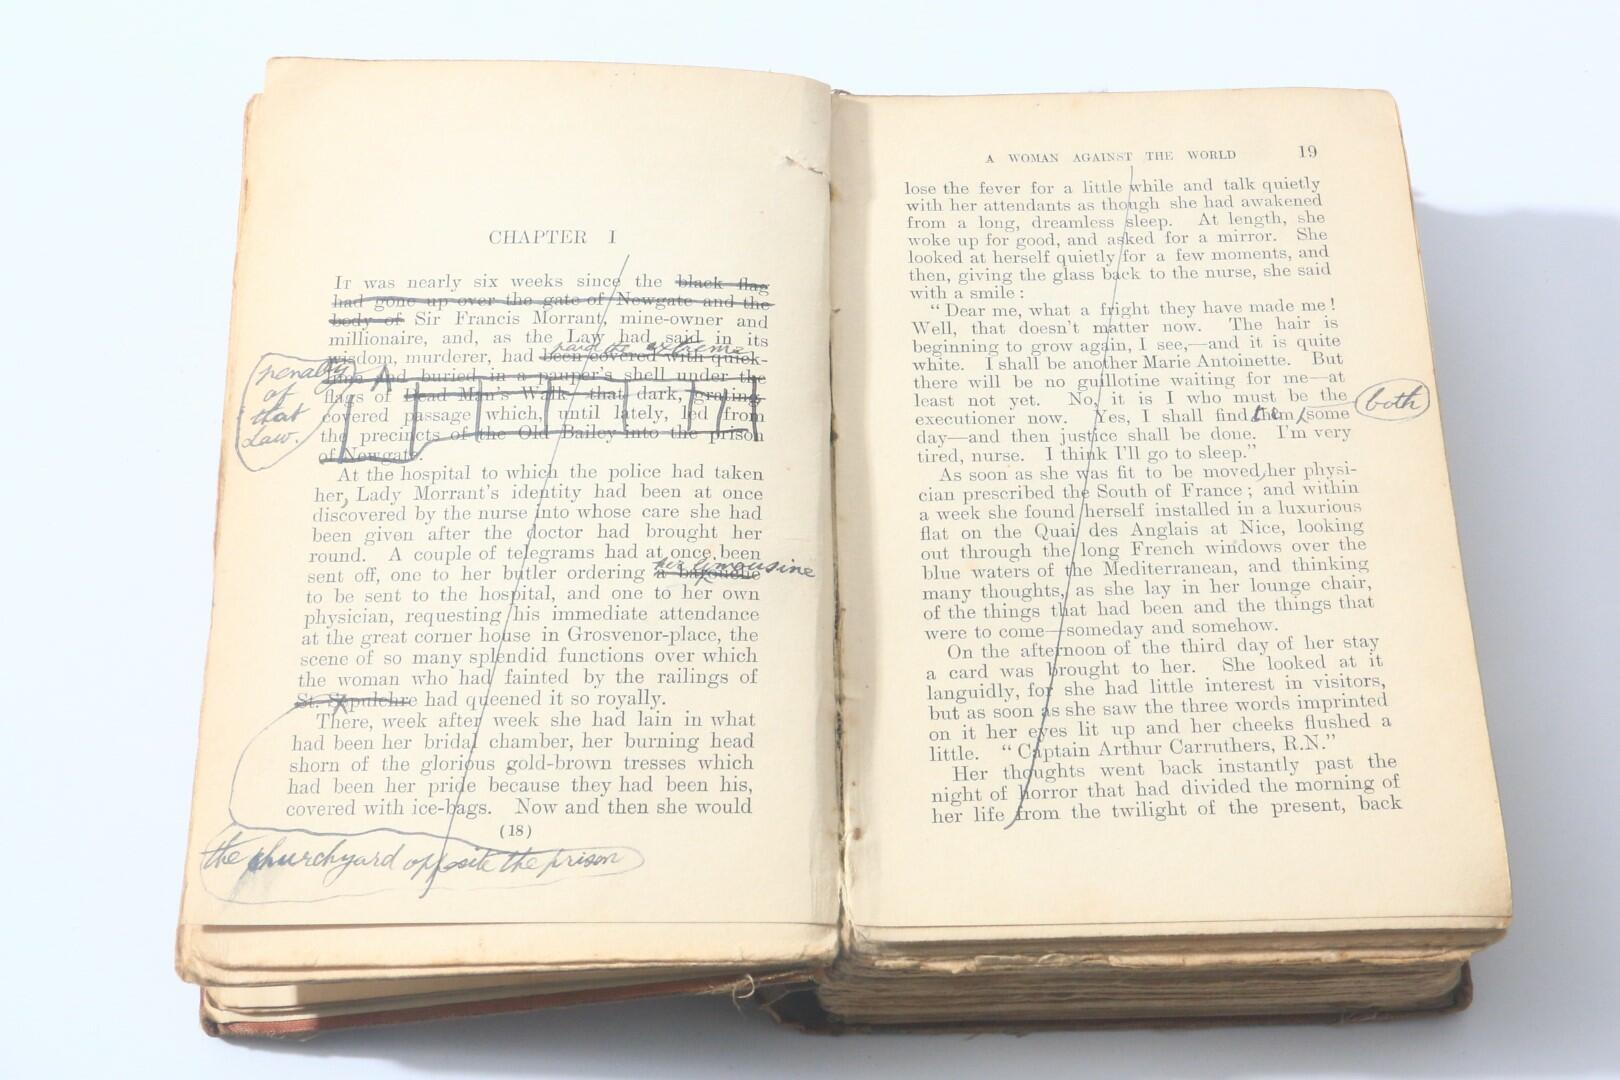 CHAPTER I
IT was nearly six weeks since the black flag
had gone up over the gate of Newgate and the
body of Sir Francis Morrant, mine-owner and
millionaire, and, as the Law had said in its
paid the extreme
wisdom, murderer, had been covered with quick-
penalty of that Law.
lime and buried in a pauper's shell under the
flags of Dead Man's Walk that dark, grating-
covered passage which, until lately, led from
the precincts of the Old Bailey into the prison
of Newgate.
At the hospital to which the police had taken
her, Lady Morrant's identity had been at once
discovered by the nurse into whose care she had
been given after the doctor had brought her
round. A couple of telegrams had at once been
her limousine
sent off, one to her butler ordering a barouche
to be sent to the hospital, and one to her own
physician, requesting his immediate attendance
at the great corner house in Grosvenor-place, the
scene of so many splendid functions over which
the woman who had fainted by the railings of
St. Sepulchre had queened it so royally.
There, week after week she had lain in what
had been her bridal chamber, her burning head
shorn of the glorious gold-brown tresses which
had been her pride because they had been his,
covered with ice-bags. Now and then she would
(18)
the churchyard opposite the prison
A WOMAN AGAINST THE WORLD 19
lose the fever for a little while and talk quietly
with her attendants as though she had awakened
from a long, dreamless sleep. At length, she
woke up for good, and asked for a mirror. She
looked at herself quietly for a few moments, and
then, giving the glass back to the nurse, she said
with a smile :
" Dear me, what a fright they have made me !
Well, that doesn't matter now. The hair is
beginning to grow again, I see,—and it is quite
white. I shall be another Marie Antoinette. But
there will be no guillotine waiting for me—at
least not yet. No, it is I who must be the
executioner now. Yes, I shall find them some
both
day—and then justice shall be done. I'm very
tired, nurse. I think I'll go to sleep."
As soon as she was fit to be moved, her physi-
cian prescribed the South of France ; and within
a week she found herself installed in a luxurious
flat on the Quai des Anglais at Nice, looking
out through the long French windows over the
blue waters of the Mediterranean, and thinking
many thoughts, as she lay in her lounge chair,
of the things that had been and the things that
were to come—someday and somehow.
On the afternoon of the third day of her stay
a card was brought to her. She looked at it
languidly, for she had little interest in visitors,
but as soon as she saw the three words imprinted
on it her eyes lit up and her cheeks flushed a
little. " Captain Arthur Carruthers, R.N."
Her thoughts went back instantly past the
night of horror that had divided the morning of
her life from the twilight of the present, back